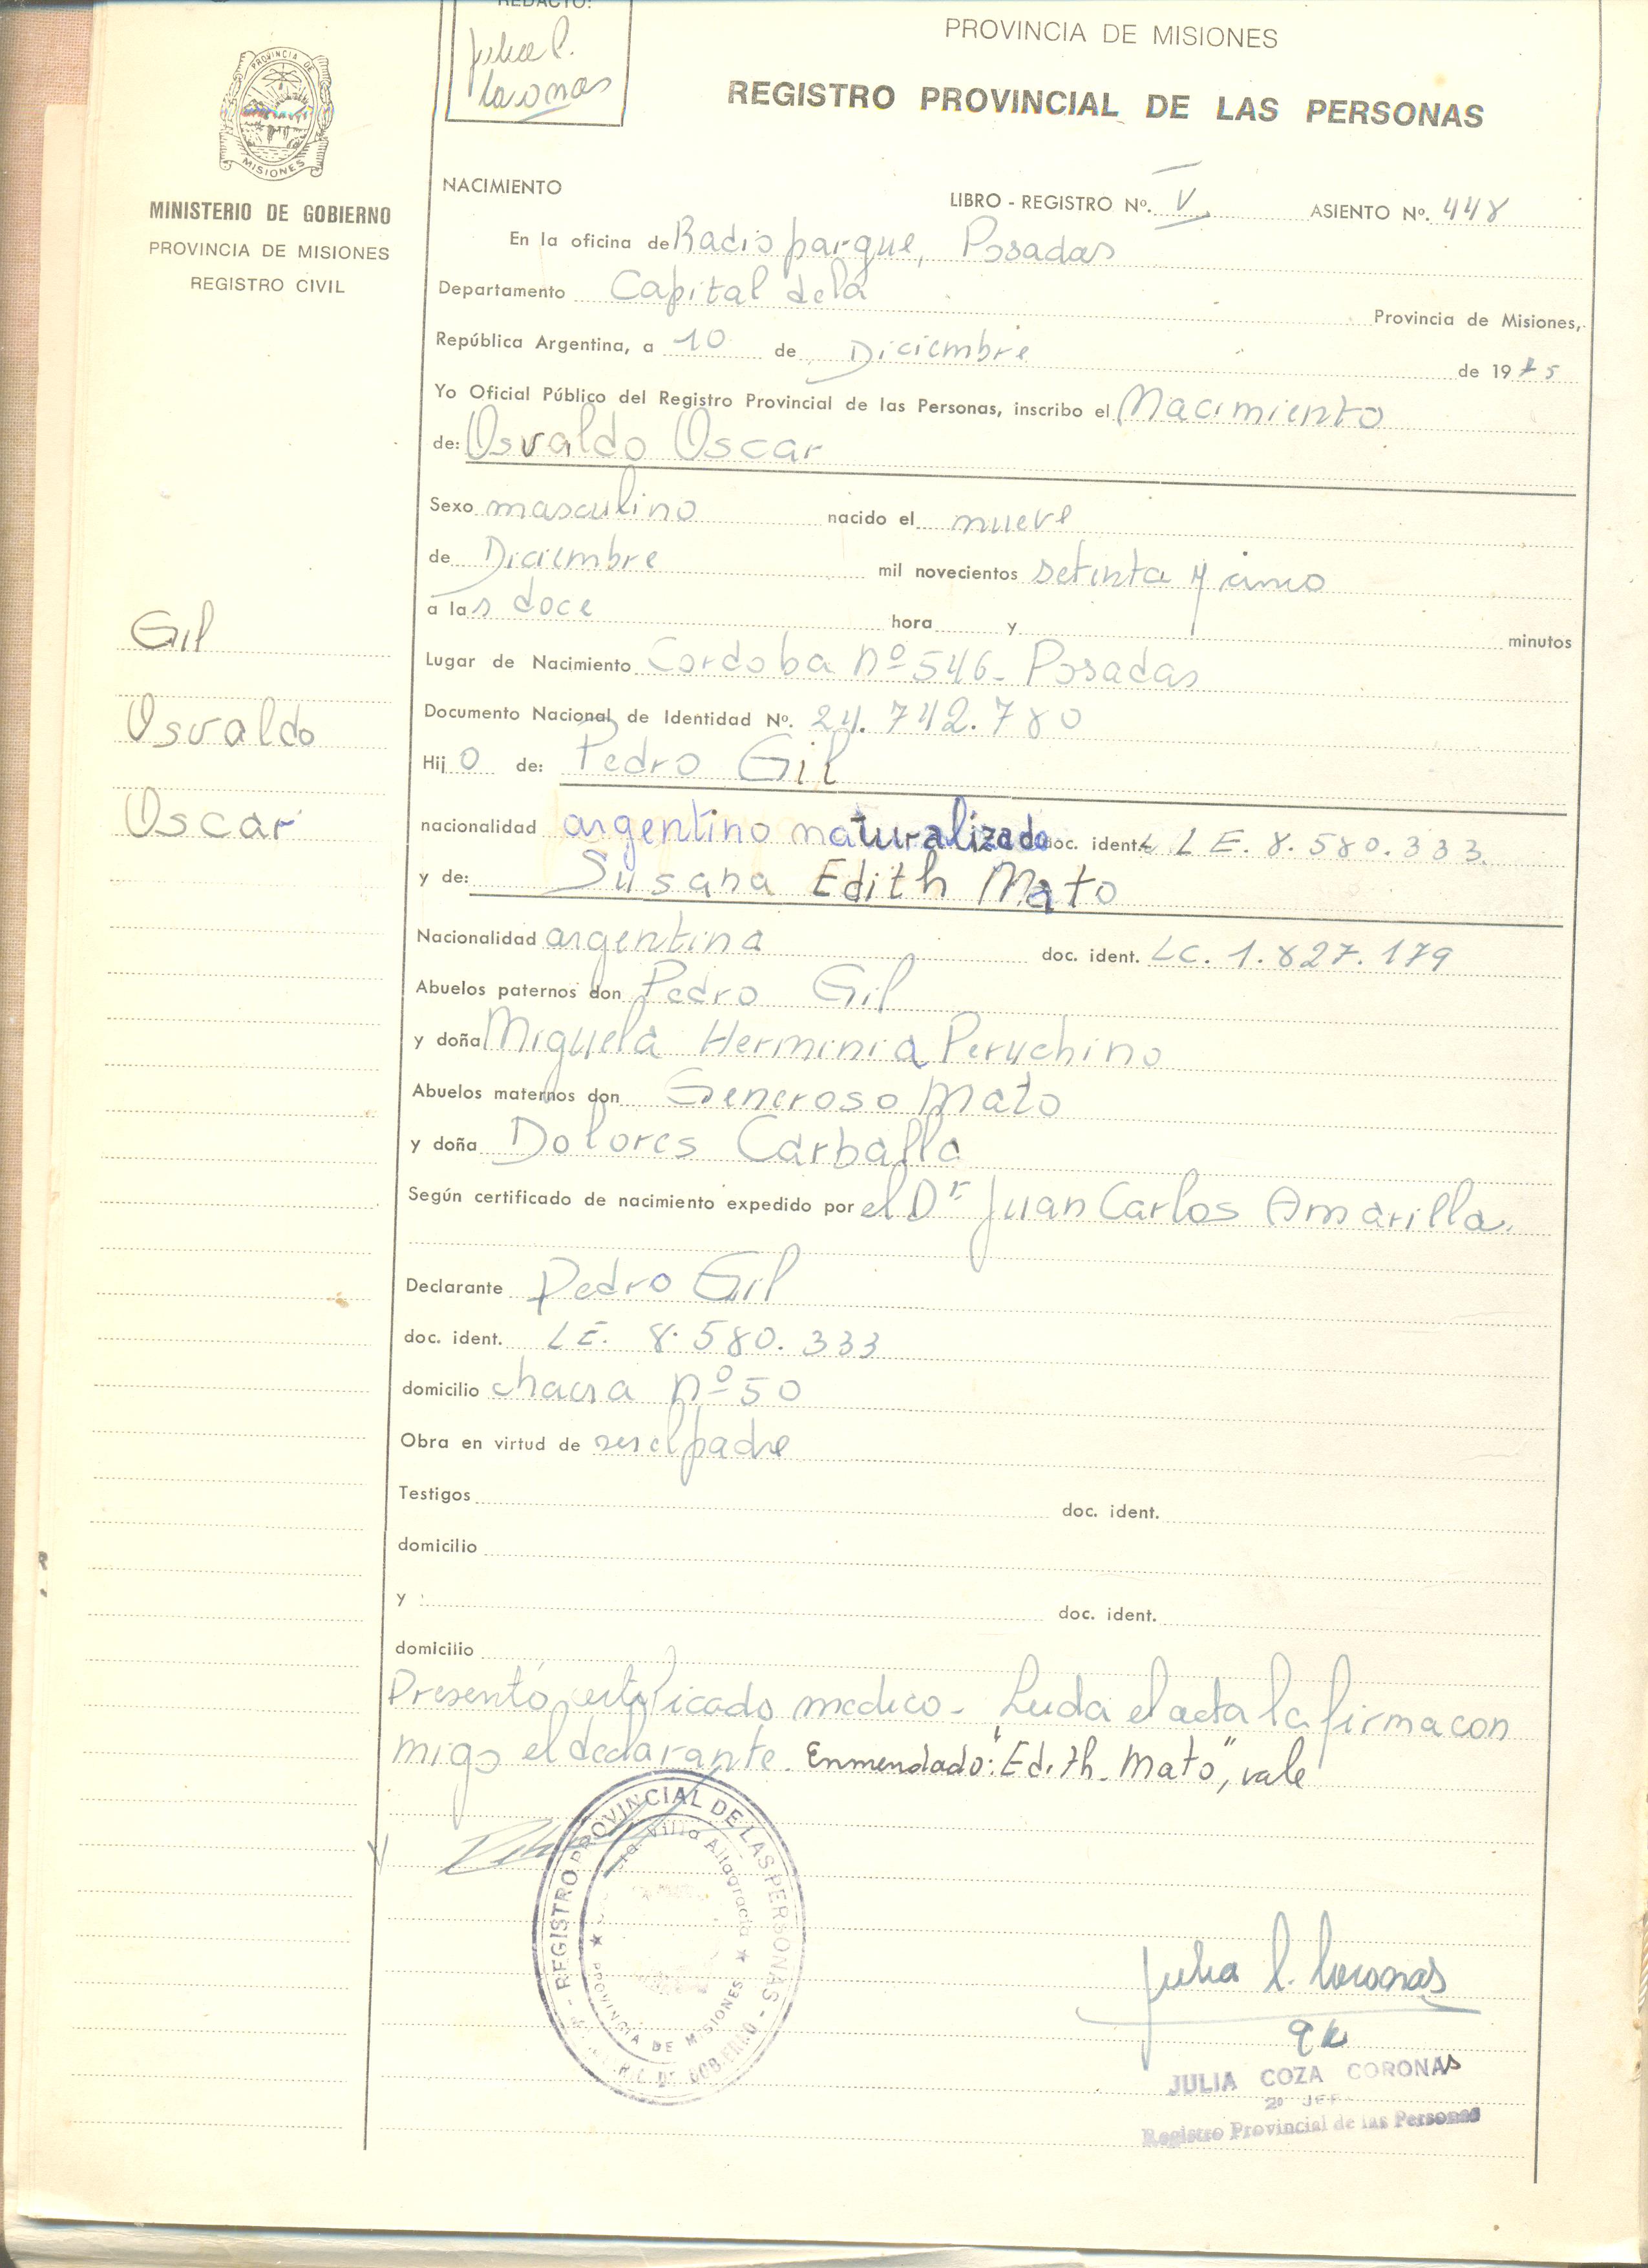 REDACTÓ:
Julia C.
Coronas
PROVINCIA DE MISIONES
REGISTRO PROVINCIAL DE LAS PERSONAS
PROVINCIA DE
MISIONES
MINISTERIO DE GOBIERNO
PROVINCIA DE MISIONES
REGISTRO CIVIL
NACIMIENTO
LIBRO - REGISTRO Nº. V ASIENTO Nº. 448
En la oficina de Radioparque, Posadas
Departamento Capital de la Provincia de Misiones,
República Argentina, a 10 de Diciembre de 1975
Yo Oficial Público del Registro Provincial de las Personas, inscribo el Nacimiento
de: Osvaldo Oscar
Sexo masculino nacido el nueve
de Diciembre mil novecientos setenta y cinco
a las doce hora y minutos
Gil
Lugar de Nacimiento Cordoba nº 546 - Posadas
Osvaldo
Documento Nacional de Identidad Nº. 24.742.780
Hijo de: Pedro Gil
Oscar
nacionalidad argentino naturalizado doc. ident. L E. 8.580.333
y de: Susana Edith Mato
Nacionalidad argentina doc. ident. LC. 1.827.179
Abuelos paternos don Pedro Gil
y doña Miguela Herminia Peruchino
Abuelos maternos don Generoso Mato
y doña Dolores Carballo
Según certificado de nacimiento expedido por el Dr Juan Carlos Amarilla.
Declarante Pedro Gil
doc. ident. LE. 8.580.333
domicilio chacra nº 50
Obra en virtud de ser el padre
Testigos doc. ident.
domicilio
y doc. ident.
domicilio
Presentó certificado medico - Leida el acta la firma con
migo el declarante. Enmendado: "Edith - Mato", vale
REGISTRO PROVINCIAL DE LAS PERSONAS
Villa Altagracia
PROVINCIA DE MISIONES
DE GOBIERNO
Julia C. Coronas
JULIA COZA CORONAS
2º JEF
Registro Provincial de las Personas